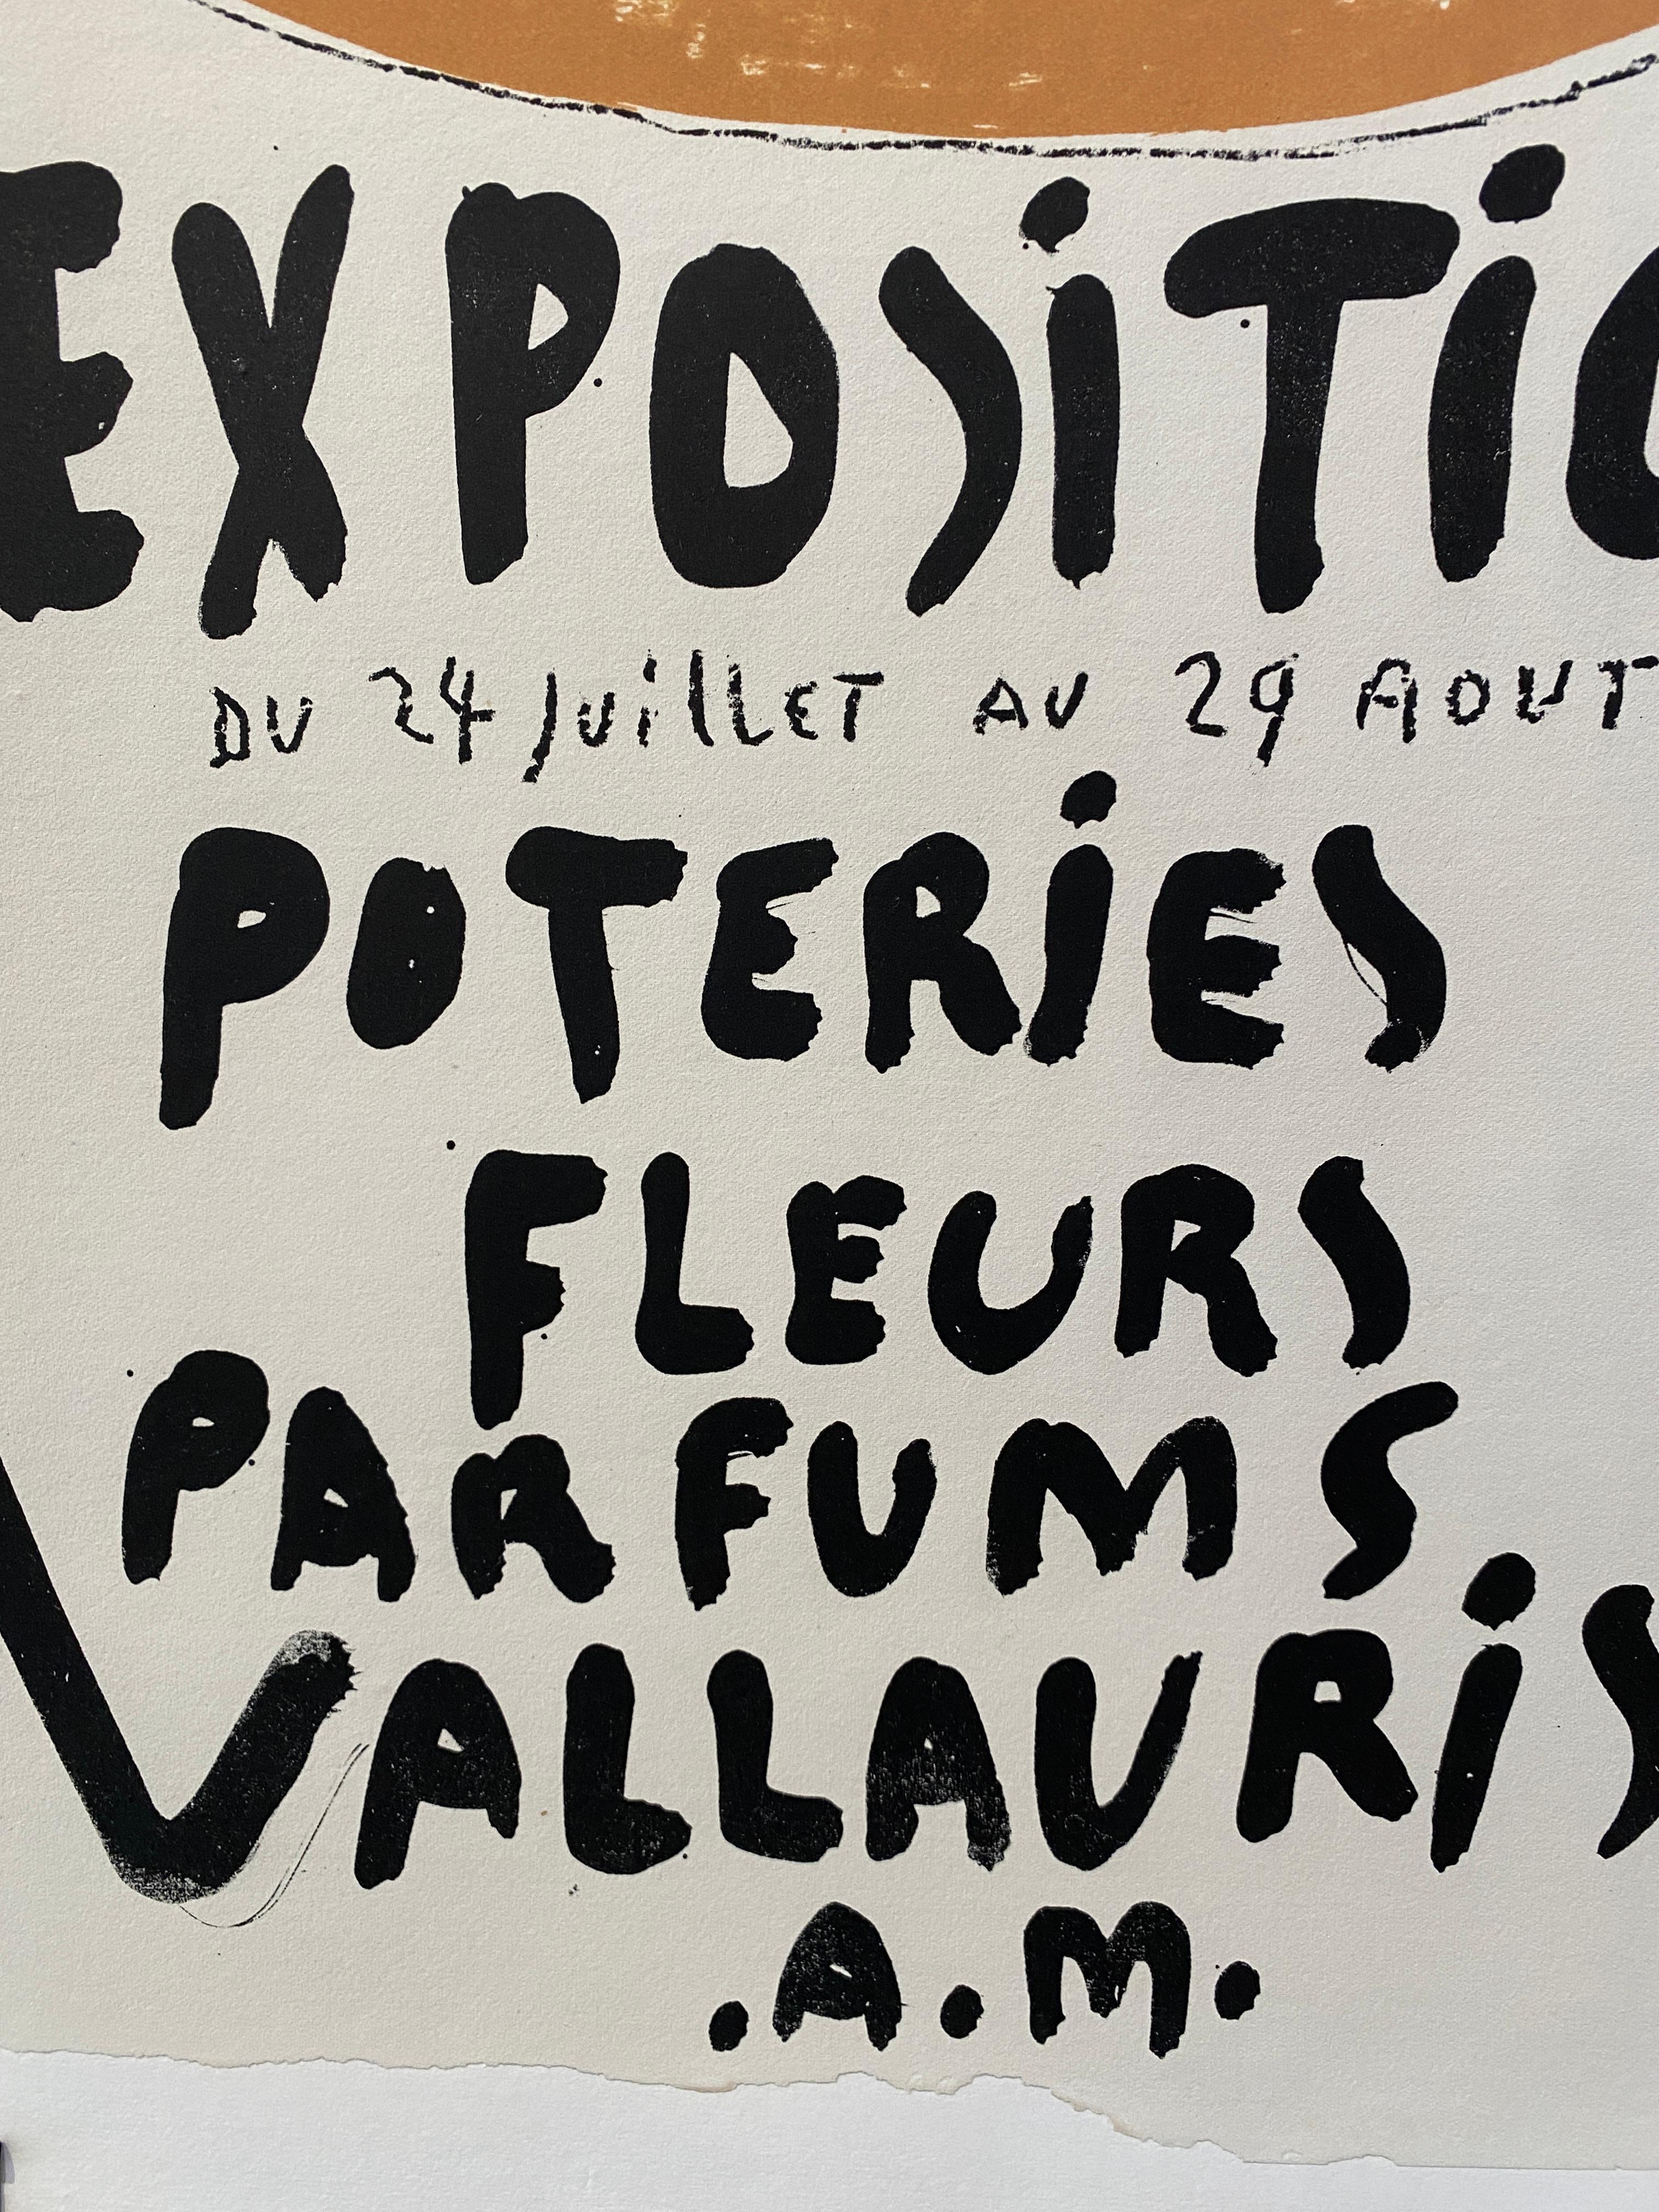 EXPOSITIO
DU 24 JuillET AU 29 AOUT
POTERiES
FLEURS
PARFUMS
VALLAURiS
.A.M.